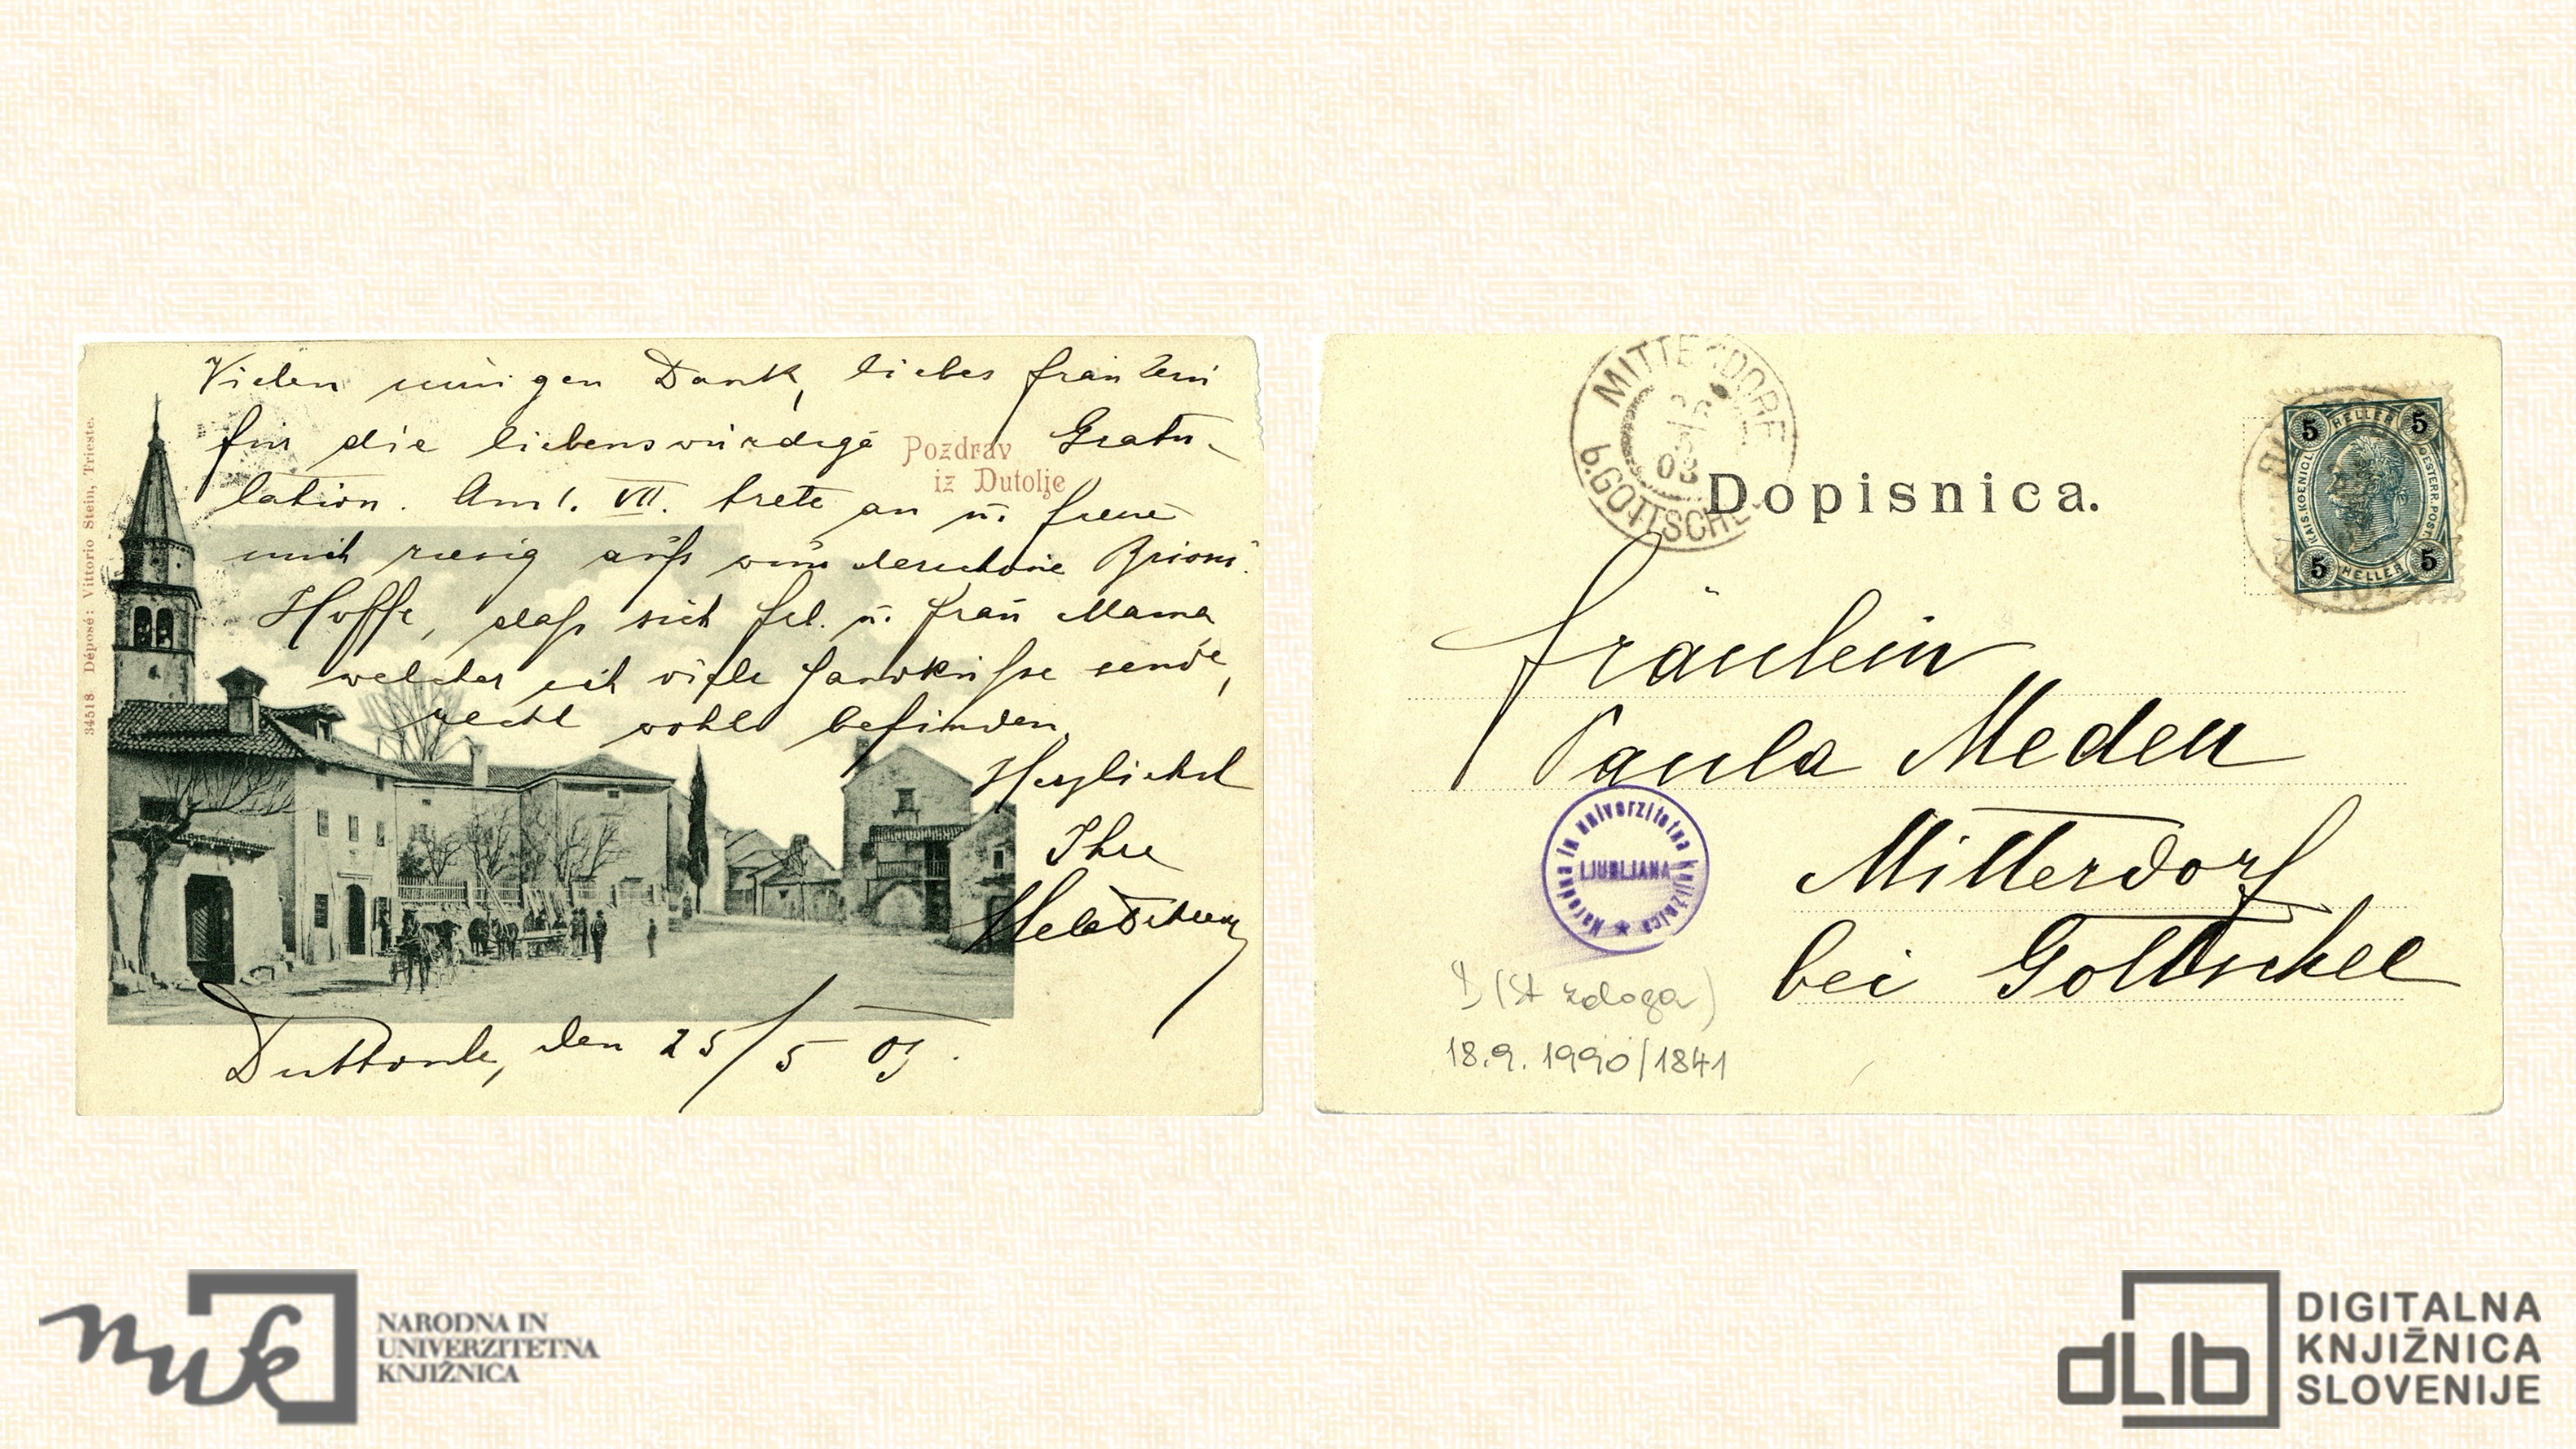 Vielen innigen Dank, liebes Fräulein
für die liebenswürdige Gratu-
lation. Am 1. VII. trete an u. freue
mich riesig aufs wunderschöne Brioni.
Hoffe, daß sich Frl. u. Frau Mama,
welcher ich viele Handküsse sende,
recht wohl befinden.
Herzlichst
Ihre
Duttoule, den 25/5 03.
Pozdrav
iz Dutolje
34518 Déposé: Vittorio Stein, Trieste.
MITTERDORF
b. GOTTSCHEE
03
Dopisnica.
5 HELLER 5
KAIS. KOENIGL. OESTERR. POST
5 HELLER 5
Fräulein
Paula Meden
Mitterdorf
bei Gottschee
Narodna in univerzitetna knjižnica
LJUBLJANA
D (st zaloga)
18.9.1990/1841
nuk
NARODNA IN
UNIVERZITETNA
KNJIŽNICA
dLib
DIGITALNA
KNJIŽNICA
SLOVENIJE